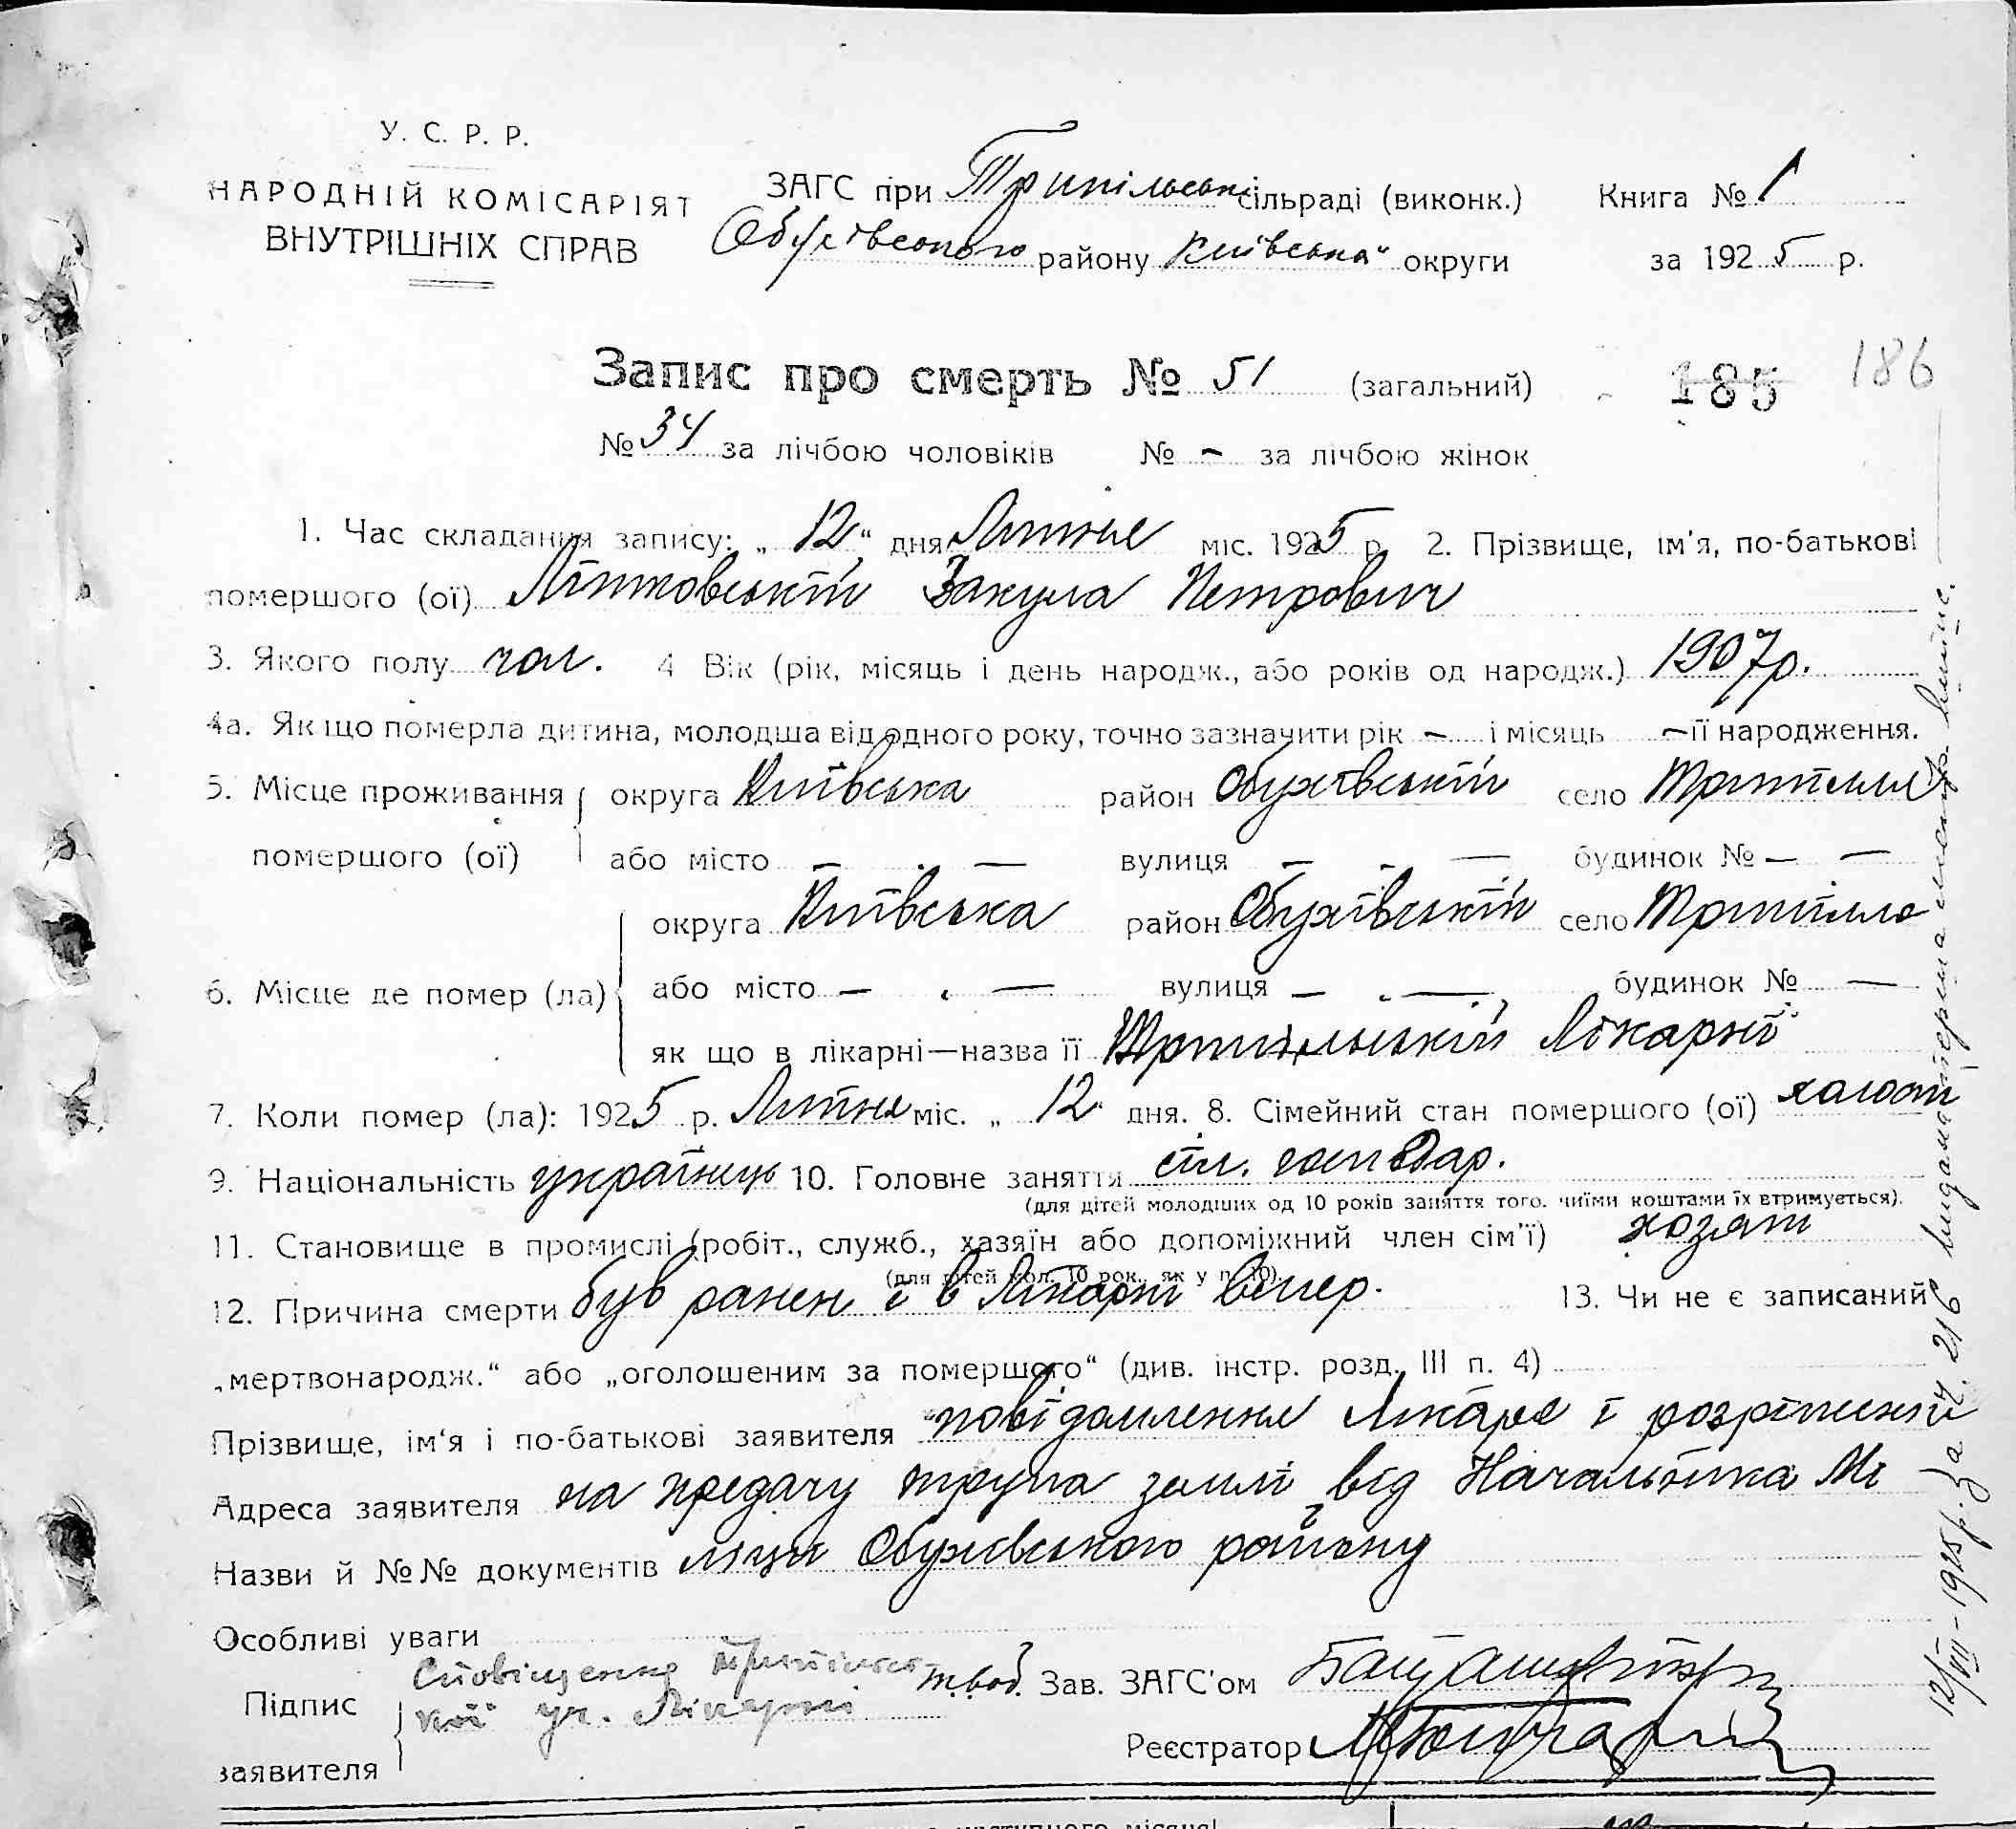 У. С. Р. Р.
НАРОДНІЙ КОМІСАРІЯТ
ВНУТРІШНІХ СПРАВ
ЗАГС при Трипільськ сільраді (виконк.)
Обухівського району Київська округи
Книга № 1
за 1925 р.
Запис про смерть № 51 (загальний)
185 186
№ 34 за лічбою чоловіків № – за лічбою жінок
1. Час складання запису: „ 12 “ дня Липня міс. 1925 р. 2. Прізвище, ім'я, по-батькові
помершого (ої) Літковський Вакула Петрович
3. Якого полу чол. 4 Вік (рік, місяць і день народж., або років од народж.) 1907р.
4а. Як що померла дитина, молодша від одного року, точно зазначити рік – і місяць – її народження.
5. Місце проживання округа Київська район Обухівський село Трипілля
помершого (ої) або місто — — вулиця — — будинок № — —
округа Київська район Обухівський село Трипілля
6. Місце де помер (ла) або місто — — вулиця — — будинок № —
як що в лікарні—назва її Трипільській Лікарні
7. Коли помер (ла): 1925 р. Липня міс. „ 12 “ дня. 8. Сімейний стан помершого (ої) холост
9. Національність українець 10. Головне заняття сіл. господар.
(для дітей молодших од 10 років заняття того, чиїми коштами їх втримується).
11. Становище в промислі (робіт., служб., хазяїн або допоміжний член сім'ї) хозяїн
(для дітей мол. 10 рок., як у п. 10).
12. Причина смерти був ранен і в Лікарні вмер. 13. Чи не є записаний
„мертвонародж.“ або „оголошеним за помершого“ (див. інстр. розд. III п. 4)
Прізвище, ім'я і по-батькові заявителя повідомлення Лікаря і розрішений
Адреса заявителя на предачу трупа землі від Начальника Мі
Назви й №№ документів ліции Обухівського району
Особливі уваги
Підпис
заявителя
Сповіщення Трипільсь-
кої уч. Лікарні
т.вод. Зав. ЗАГС'ом
Реєстратор
12/VII-1925 р. За ч. 216 видана